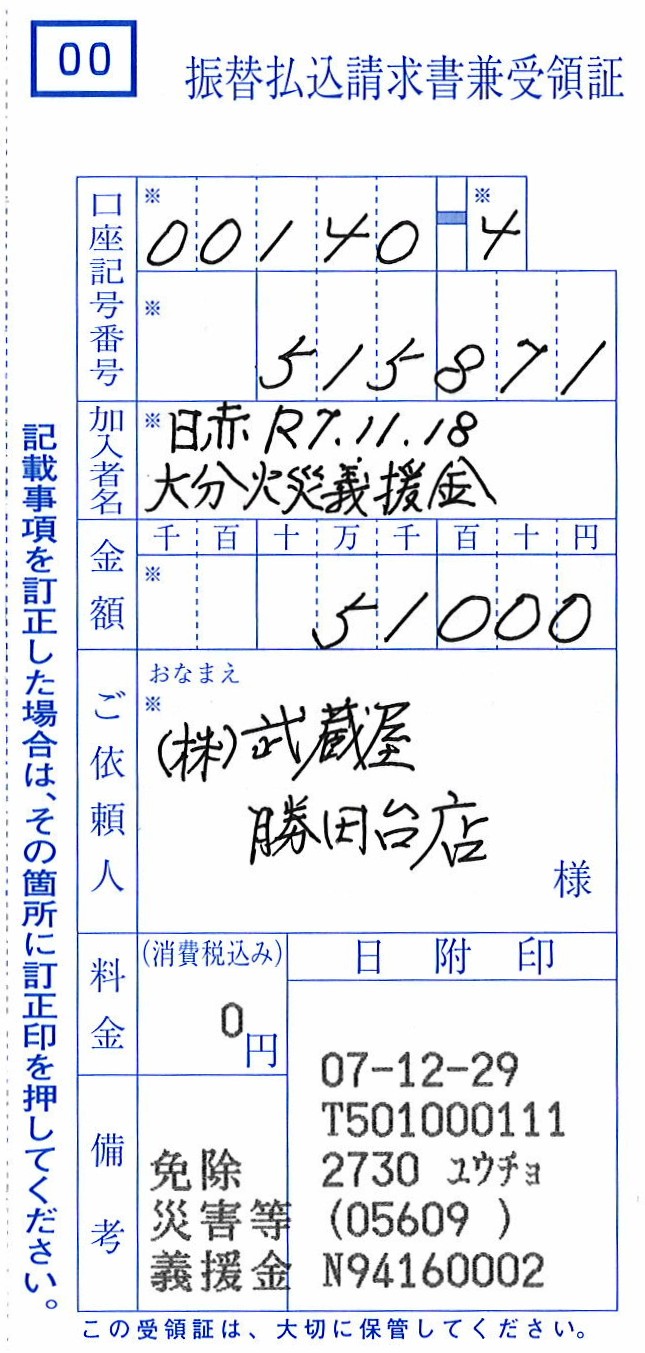 00
振替払込請求書兼受領証
口座記号番号
※
00140-
※
4
※
515871
加入者名
※
日赤 R7.11.18
大分火災義援金
金額
千百十万千百十円
※
51000
ご依頼人
おなまえ
※
(株)武蔵屋
勝田台店
様
料金
(消費税込み)
0円
日附印
07-12-29
T501000111
2730 ユウチョ
(05609 )
N94160002
備考
免除
災害等
義援金
記載事項を訂正した場合は、その箇所に訂正印を押してください。
この受領証は、大切に保管してください。